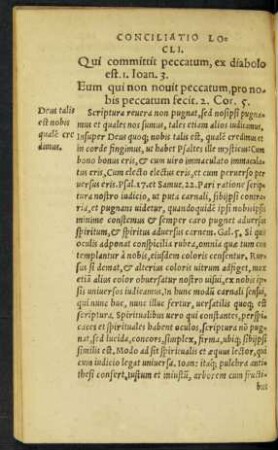 CONCILIATIO LO-
CLI.
Qui committit peccatum, ex diabolo
est. 1. Ioan. 3.
Eum qui non nouit peccatum, pro no-
bis peccatum fecit. 2. Cor. 5.
Deus talis
est nobis
qualē cre
dimus.
Scriptura reuera non pugnat, sed nosipsi pugna-
mus et quales nos sumus, tales etiam alios iudicamus.
Insuper Deus quoq; nobis talis est, qualē credimus et
in corde fingimus, ut habet Psaltes ille mysticus: Cum
bono bonus erit, & cum uiro immaculato immacula-
tus eris, cum electo electus erit, et cum peruerso per-
uersus eris. Psal. 17. et Samue. 22. Pari ratione scrip-
tura nostro iudicio, ut puta carnali, sibiipsi contra-
ria, et pugnans uidetur, quandoquidē ipsi nobisipsis
minime constemus & semper caro pugnet aduersus
spiritum, & spiritus aduersus carnem. Gal. 5. Si quis
oculis adponat conspicilia rubea, omnia quæ tum con
templantur à nobis, eiusdem coloris censentur. Rur-
sus si demat, & alterius coloris uitrum adfiget, mox
etiā alius color obuersatur nostro uisui, ex nobis ip-
sis uniuersos iudicamus, in hunc modū carnali sensui,
qui nunc huc, nunc illuc fertur, uersatilis quoq; est
scriptura. Spiritualibus uero qui constantes, perspi-
caces et spirituales habent oculos, scriptura nō pug-
nat, sed lucida, concors, simplex, firma, ubiq; sibiipsi
similis est. Modo ad sit spiritualis et æquus lector, qui
cum iudicio legat uniuersa. Ioan: itaq; pulchra anti-
thesi confert, iustum et iniustū, arborem cum fructi-
bus